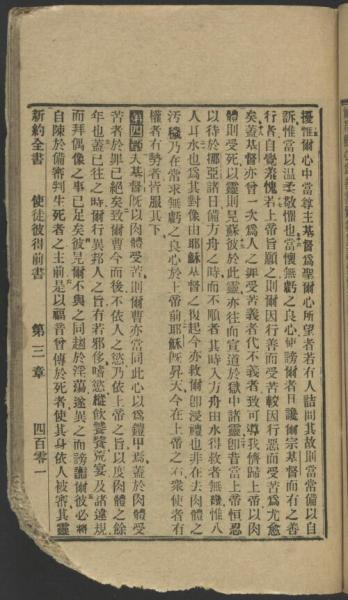 擾惟爾心中當尊主基督爲聖爾心所望者若有人詰問其故則當常備以自
訴惟當以温柔敬懼也當懷無虧之良心使謗爾者日讒爾宗基督而有之善
行者自覺羞愧若上帝旨願之則爾因行善而受苦較因行惡而受苦爲尤愈
矣蓋基督亦曾一次爲人之罪受苦義者代不義者致可導我儕歸上帝以肉
體則受死以靈則見蘇彼於此靈亦往而宣道於獄中諸靈卽昔當上帝恒忍
以待於挪亞諸日備方舟之時而不順者其時入方舟由水得救者無幾惟八
人耳水也爲其對像由耶穌基督之復起今亦救爾卽浸禮也非在去肉體之
汚穢乃在常求無虧之良心於上帝前耶穌旣昇天今在上帝之右衆使者有
權者有勢者皆服其下
第四章夫基督旣以肉體受苦則爾曹亦當同此心以爲鎧甲焉蓋於肉體受
苦者於罪已絕矣致爾曹今而後不依人之慾乃依上帝之旨以度肉體之餘
年也蓋已往之時爾行異邦人之旨有若邪侈嗜慾縱飲饕餮荒宴及諸違規
而拜偶像之事已足矣彼見爾不與之同趨於淫蕩遂異之而謗讟爾彼必將
自陳於備審判生死者之主前是以福音曾傳於死者使其身依人被審其靈
新約全書 使徒彼得前書 第三章 四百零一